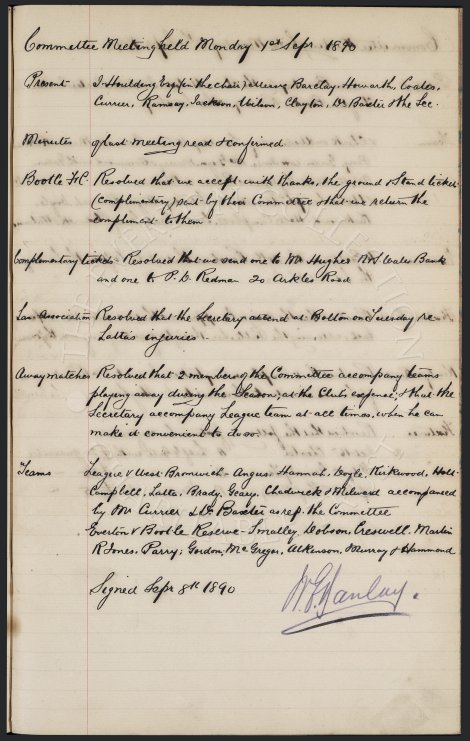 Committee Meeting held Monday 1st Sept 1890
Present J. Houlding Esqr (in the chair) Messrs Barclay, Howarth, Coates,
Currier, Ramsay, Jackson, Wilson, Clayton, Dr Baxter & the Sec.
Minutes of last meeting read & confirmed
Bootle F.C. Resolved that we accept with thanks, the ground & stand ticket
(complimentary) sent by their Committee & that we return the
compliment to them
Complimentary tickets Resolved that we send one to Mr Hughes N & S Wales Bank
and one to P. D. Redman 20 Arkles Road
Lan. Association Resolved that the Secretary attend at Bolton on Tuesday re
Latta's injuries
Away matches Resolved that 2 members of the Committee accompany teams
playing away during the Season, at the Club's expense, & that the
Secretary accompany League team at all times, when he can
make it convenient to do so
Teams League v West Bromwich - Angus, Hannah, Doyle, Kirkwood, Holt
Campbell, Latta, Brady, Geary, Chadwick & Milward accompanied
by Mr Currier & Dr Baxter as rep. the Committee
Everton v Bootle Reserve - Smalley, Dobson, Creswell, Martin
R Jones, Parry, Gordon, McGregor, Atkinson, Murray & Hammond
Signed Sept 8th 1890